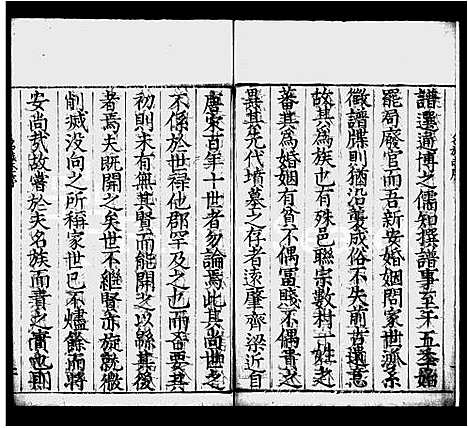 譜選遍博之儒知撰譜事至于五季始
罷局廢官而吾新安婚姻問家世派系
徵譜牒則猶沿襲成俗不失前哲遺意
故其為族也有殊邑聯宗數村一姓者
蕃其為婚姻有貧不偶富賤不偶貴者
異其先代墳墓之存者遠肇齊梁近自
唐宋百年十世者勿論焉此其尚世也
不係於世祿他郡罕及之而耆要其
初則未有無其賢而能開之以繇其後
者焉夫既開之矣世不繼賢亦旋就微
削滅沒向之所稱家世已不燼餘而將
安尚哉故嘗於夫名族而著之實也即